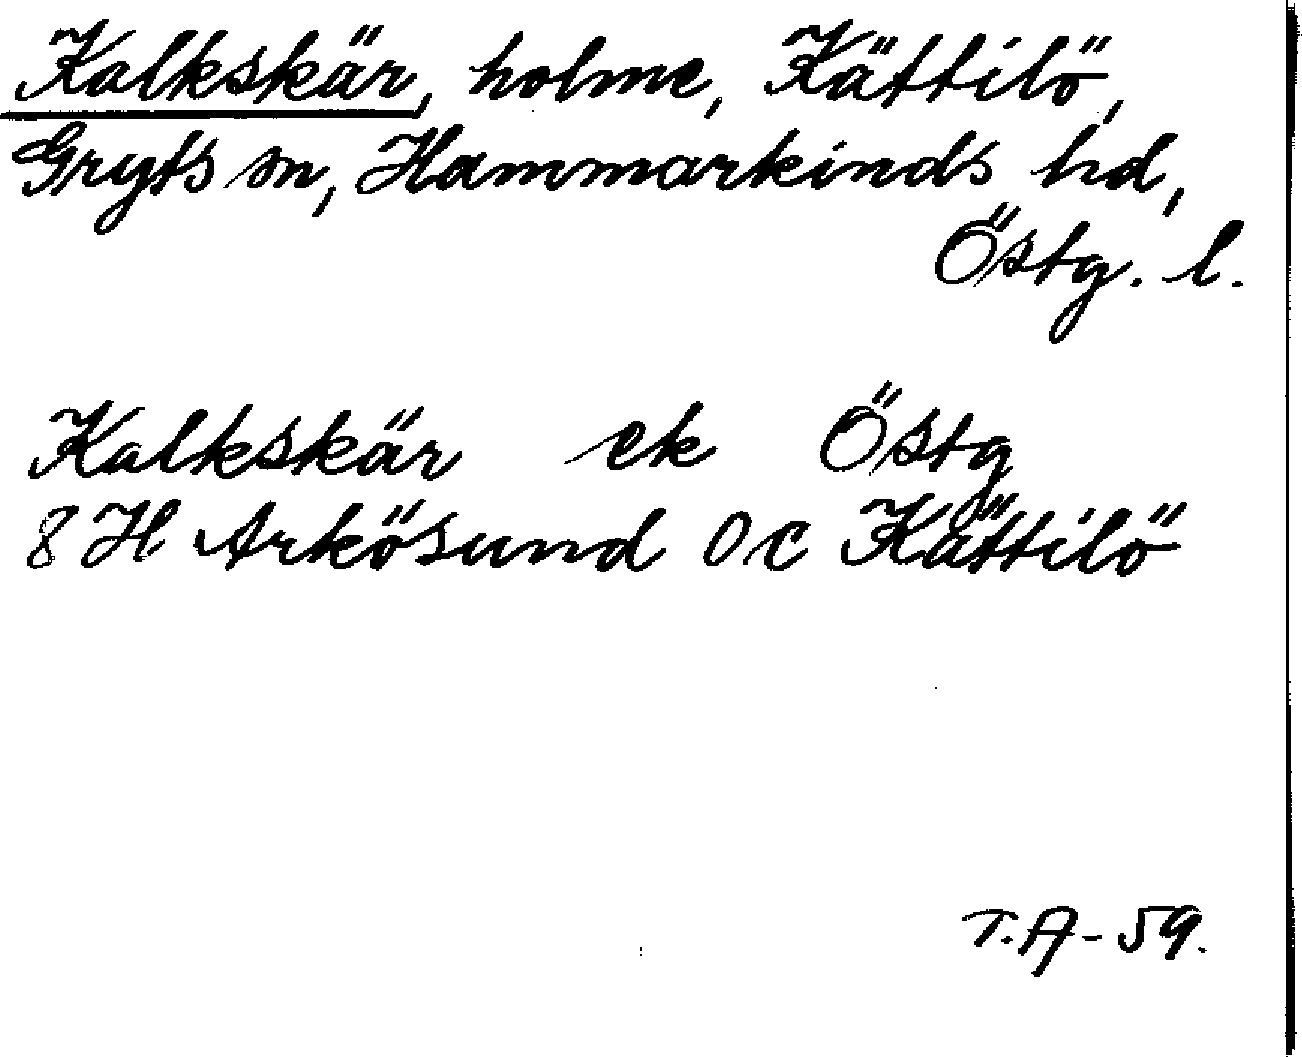 Kalkskär, holme, Kättilö,
Gryts sn, Hammarkinds hd,
Östg. l.
Kalkskär ek Östg
8 H Arkösund 0 c Kättilö
T.A-59.